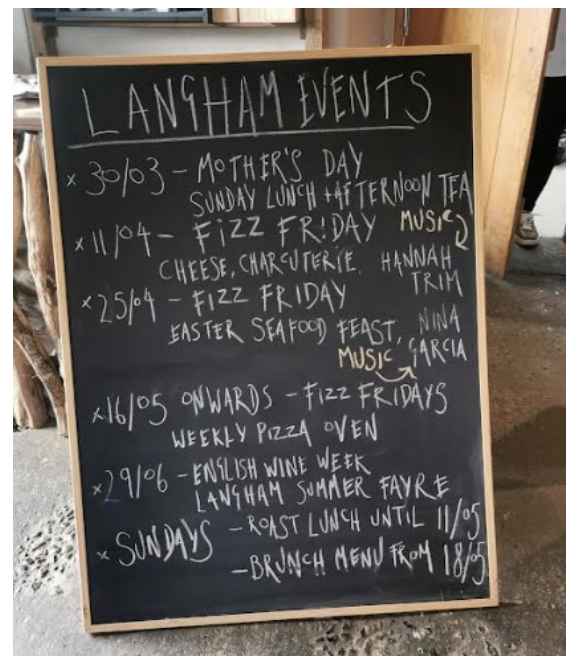 LANGHAM EVENTS
x 30/03 - MOTHER'S DAY
SUNDAY LUNCH + AFTERNOON TEA
x 11/04 - FIZZ FRIDAY MUSIC
CHEESE, CHARCUTERIE. HANNAH
TRIM
x 25/04 - FIZZ FRIDAY
EASTER SEAFOOD FEAST, NINA
MUSIC GARCIA
x 16/05 ONWARDS - FIZZ FRIDAYS
WEEKLY PIZZA OVEN
x 29/06 - ENGLISH WINE WEEK
LANGHAM SUMMER FAYRE
x SUNDAYS - ROAST LUNCH UNTIL 11/05
- BRUNCH MENU FROM 18/05